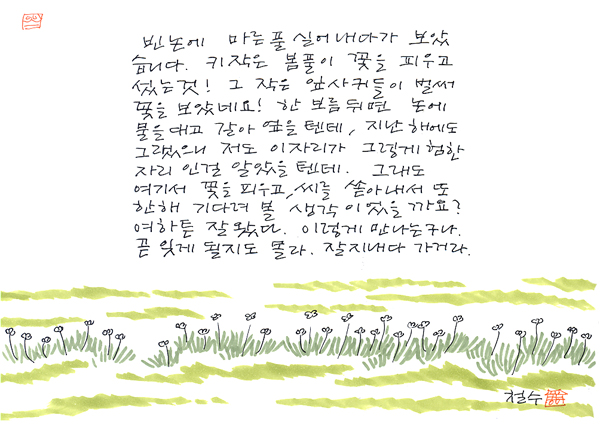 빈 논에 마른 풀 실어 내다가 보았
습니다. 키작은 봄풀이 꽃을 피우고
섰는 것! 그 작은 잎사귀들이 벌써
꽃을 보았네요! 한 보름 뒤면 논에
물을 대고 갈아 엎을 텐데, 지난 해에도
그랬으니 저도 이자리가 그렇게 험한
자리 인걸 알았을 텐데. 그래도
여기서 꽃을 피우고, 씨를 쏟아내서 또
한해 기다려 볼 생각 이었을 까요?
여하튼 잘 왔다. 이렇게 만나는구나.
곧 잊게 될지도 몰라. 잘지내다 가거라.
철수